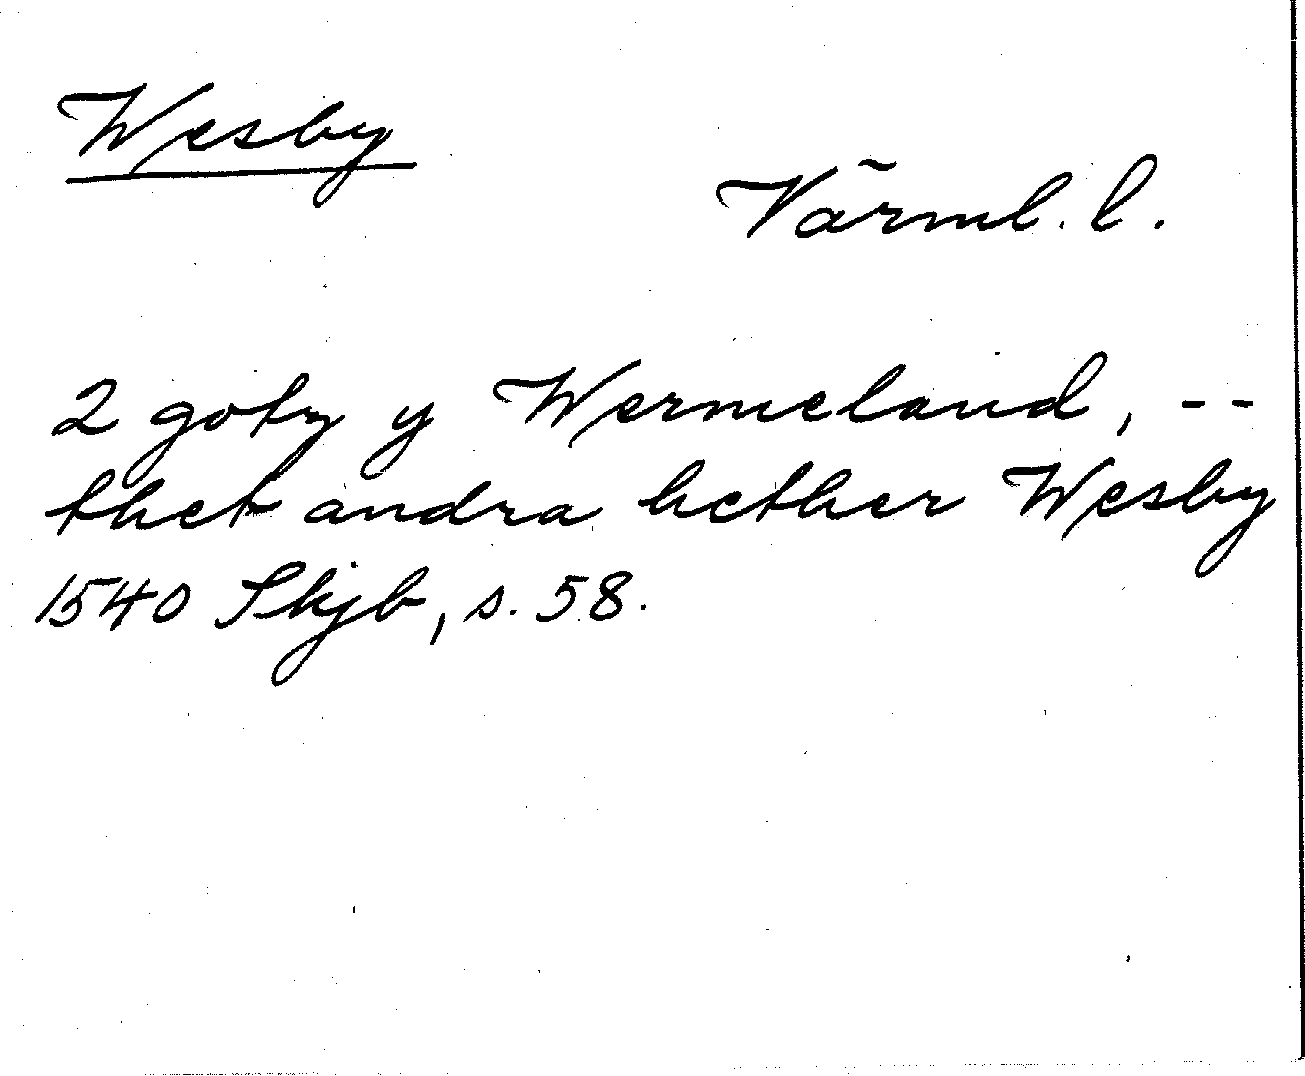 Wesby
Värml. l.
2 gotz y Wermeland, --
thet andra hether Wesby
1540 Skjb, s. 58.